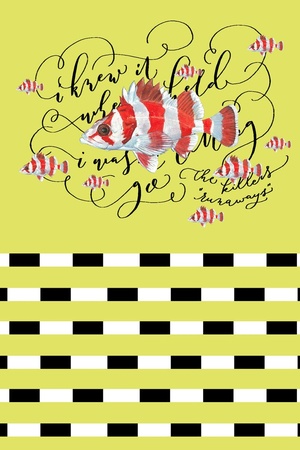 i knew it
when held
i was
go
the killers
"runaways"